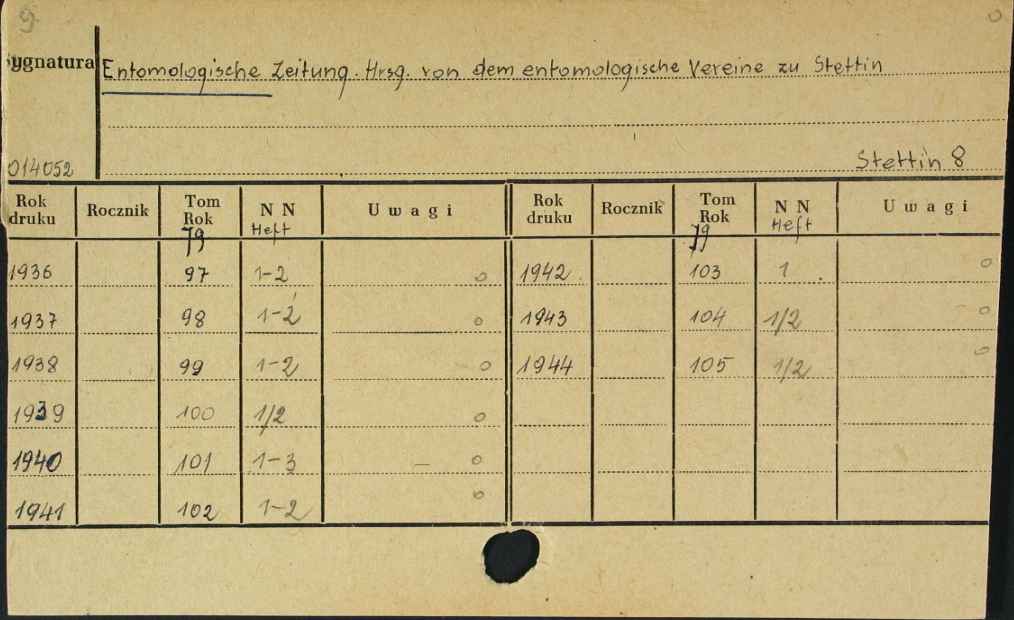 9
Sygnatura
Entomologische Zeitung. Hrsg. von dem entomologische Vereine zu Stettin
014052
Stettin 8
Rok druku Rocznik Tom Rok Jg NN Heft Uwagi Rok druku Rocznik Tom Rok Jg NN Heft Uwagi
1936 97 1-2 o 1942 103 1 o
1937 98 1-2 o 1943 104 1/2 o
1938 99 1-2 o 1944 105 1/2 o
1939 100 1/2 o
1940 101 1-3 – o
1941 102 1-2 o